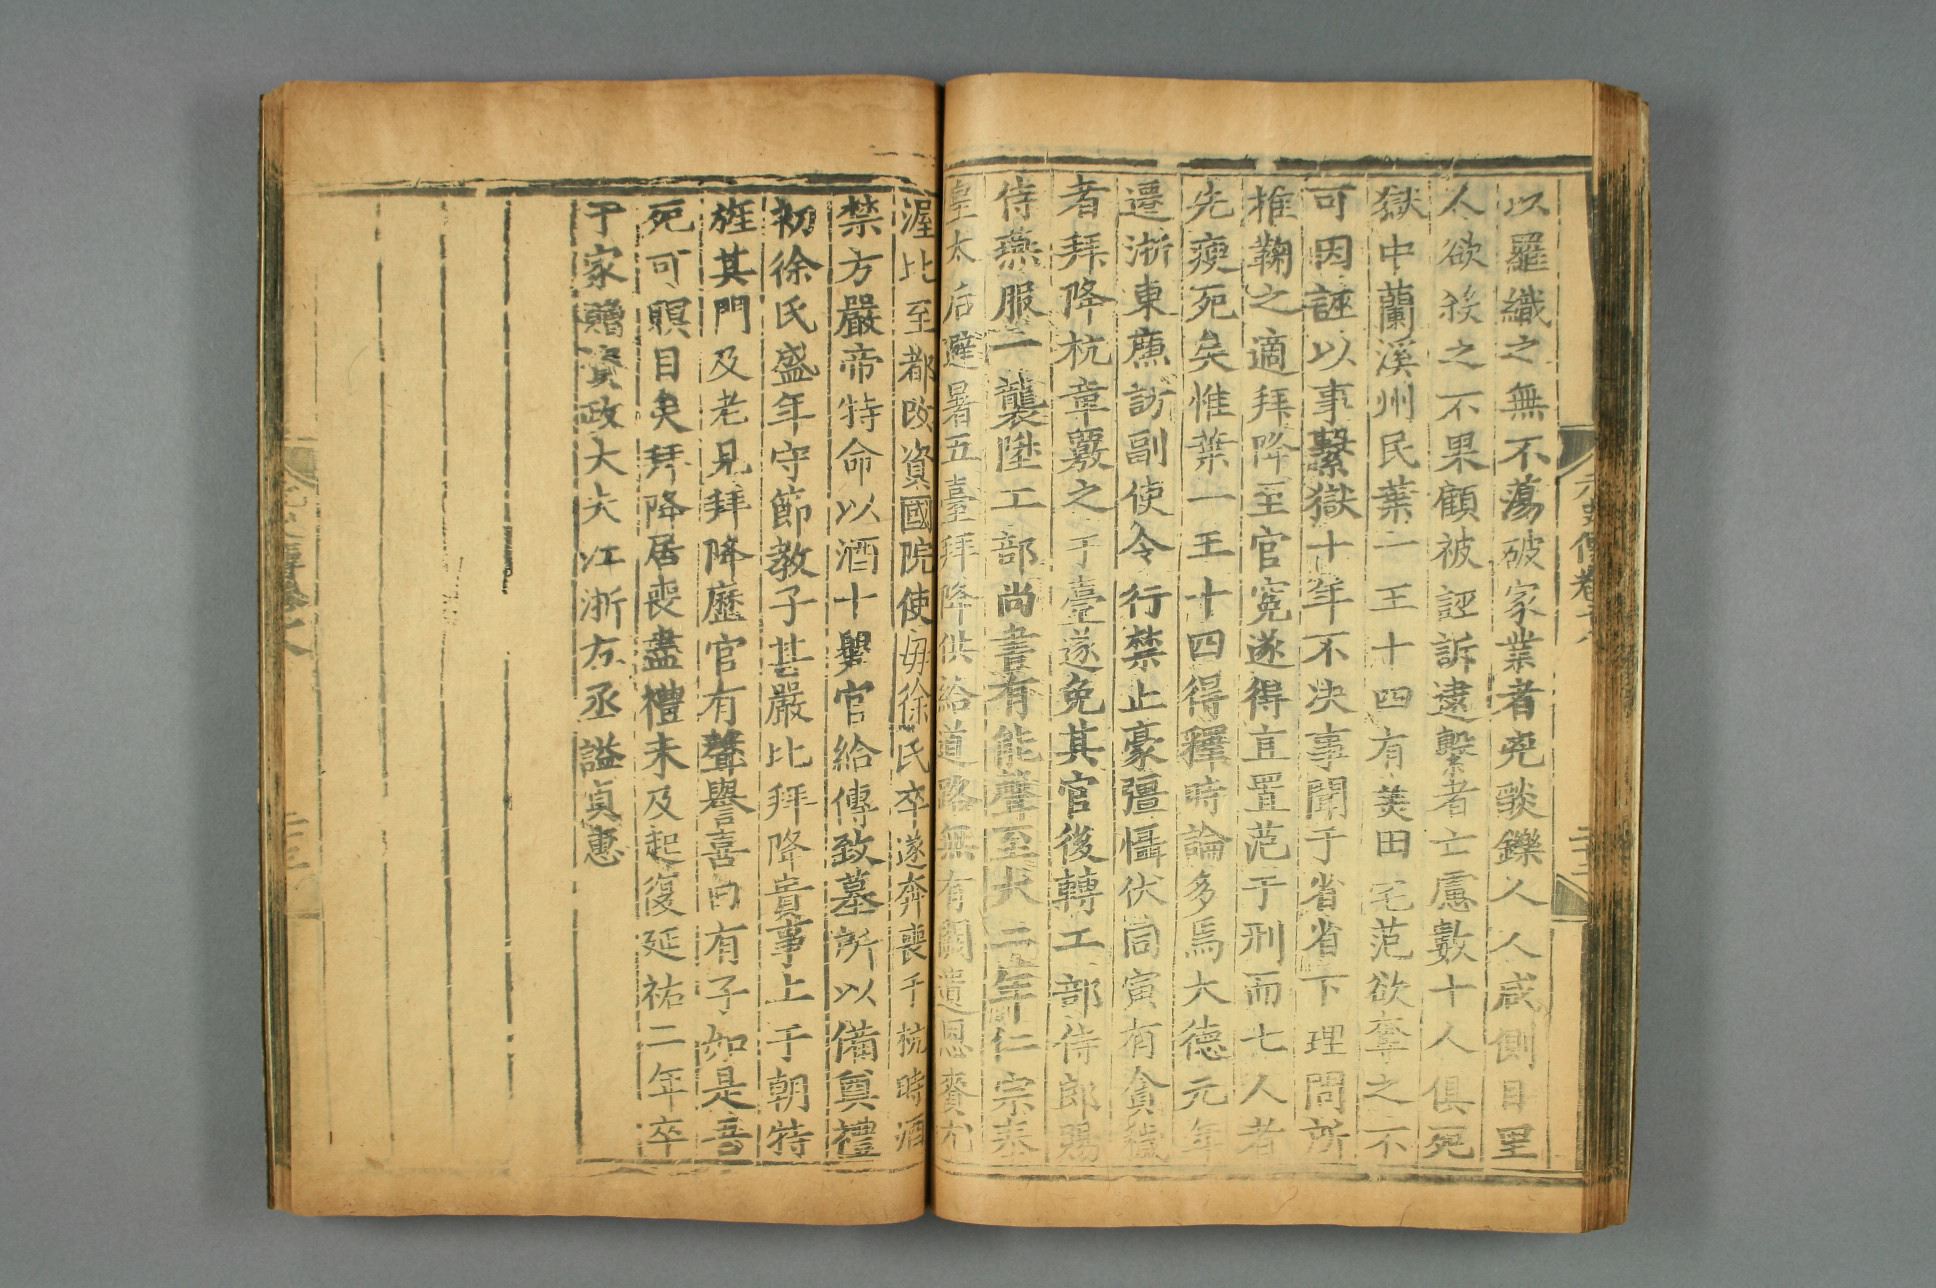 以羅織之無不蕩破家業者兇燄鑠人人咸側目里
人欲殺之不果顧被誣訴逮繫者亡慮數十人俱死
獄中蘭溪州民葉一王十四有美田宅范欲奪之不
可因誣以事繫獄十年不决事聞于省省下理問所
推鞫之適拜降至官冤遂得直置范于刑而七人者
先瘐死矣惟葉一王十四得釋時論多焉大德元年
遷浙東廉訪副使令行禁止豪彊懾伏同寅有貪穢
者拜降抗章覈之于臺遂免其官後轉工部侍郎賜
侍燕服二襲陞工部尚書有能聲至大二年仁宗奉
皇太后避暑五臺拜降供給道路無有闕遺恩賚尤
渥比至都改資國院使母徐氏卒遂奔喪于杭時酒
禁方嚴帝特命以酒十甖官給傳致墓所以備奠禮
初徐氏盛年守節教子甚嚴比拜降貴事上于朝特
旌其門及老見拜降歷官有聲譽喜曰有子如是吾
死可瞑目矣拜降居喪盡禮未及起復延祐二年卒
于家贈資政大夫江浙左丞謚貞惠